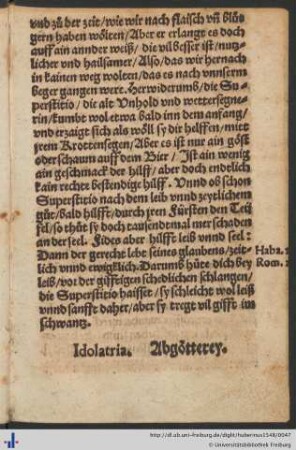 vnd zů der zeit / wie wir nach flaisch vñ blůt
gern haben wölten / Aber er erlangt es doch
auff ain annder weiß / die vil besser ist / nutz-
licher vnd hailsamer / Also / das wir hernach
in kainen weg wolten / das es nach vnnserm
beger gangen were. Herwiderumb / die Su-
perstitio / die alt Vnhold vnd wettersegne-
rin / kumbt wol etwa bald inn dem anfang /
vnd erzaigt sich als wöll sy dir helffen / mitt
jrem Krottensegen / Aber es ist nur ain göst
oder schaum auff dem Bier / Ist ain wenig
ain geschmack der hilff / aber doch endtlich
kain rechte bestendige hilff. Vnnd ob schon
Superstitio nach dem leib vnnd zeytlichem
gůt / bald hilfft / durch jren Fürsten den Teü-
fel / so thůt sy doch tausendtmal mer schaden
an der seel. Fides aber hilfft leib vnnd seel:
Dann der gerecht lebt seines glaubens / zeit- Haba. 2
lich vnnd ewigklich. Darumb hüte dich bey Rom. 1
leib / vor der gifftigen schedlichen schlangen /
die Superstitio haisset / sy schleicht wol leiß
vnnd sanfft daher / aber sy tregt vil gifft im
schwantz.
Idolatria. Abgötterey.
http://dl.ub.uni-freiburg.de/diglit/hubermus1548/0047
© Universitätsbibliothek Freiburg